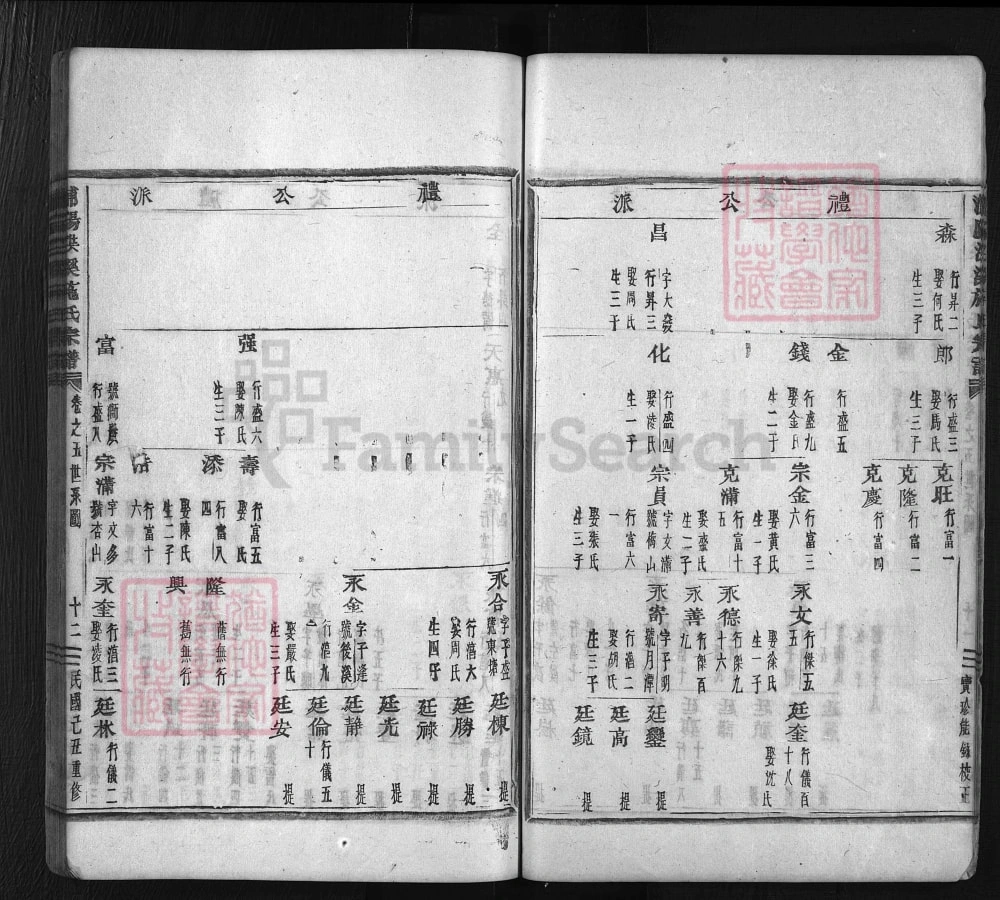 禮公派
森
行昇二
娶何氏
生三子
昌
字大發
行昇三
娶周氏
生三子
郎
行盛三
娶馬氏
生三子
金
行盛五
錢
行盛九
娶金氏
生二子
化
行盛四
娶凌氏
生一子
克旺
行富一
克隆
行富二
克慶
行富四
宗金
行富三
六
娶黃氏
生一子
克滿
行富十
五
娶盛氏
生二子
宗員
字文滿
號倚山
行富六
一
娶張氏
生三子
永文
行傑五
五
娶徐氏
生一子
永德
行傑九
十六
永善
行傑百
九
永寄
字子明
號月潭
行溍二
娶胡氏
生三子
廷奎
行儀百
十八
娶沈氏
廷鑾
提
廷高
提
廷鏡
提
寶珍能錄校正
禮公派
强
行盛六
娶陳氏
生三子
富
行盛八
壽
行富五
娶 氏
添
行富八
四
娶陳氏
生二子
行富十
六
宗滿
字文多
號杏山
永合
字子盛
號東塘
行溍六
娶周氏
生四子
永金
字子逢
號後溪
行溍九
一
娶嚴氏
生三子
隆
舊無行
興
舊無行
永奎
行溍三
娶凌氏
廷棟
提
廷勝
提
廷祿
提
廷光
提
廷靜
提
廷倫
行儀五
十
廷安
提
廷林
行儀二
施氏宗譜
卷之五世系圖
十二
民國己丑重修
FamilySearch